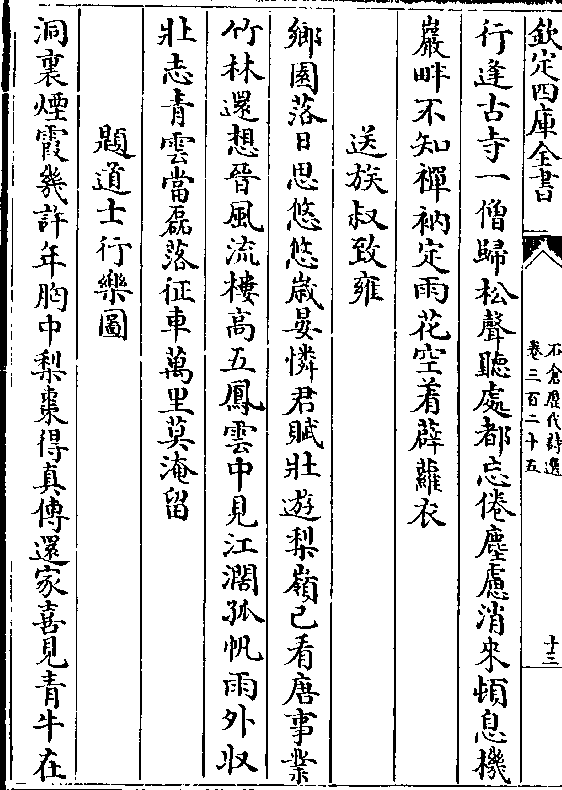 欽定四庫全書
石倉歷代詩選
卷三百二十五
十三
行逢古寺一僧歸松聲聽處都忘倦塵慮消來頓息機
巖畔不知禪衲定雨花空着薜蘿衣
送族叔致雍
鄉園落日思悠悠歲晏憐君賦壯遊梨嶺已看唐事業
竹林還想晉風流樓高五鳳雲中見江濶孤帆雨外収
壯志青雲當磊落征車萬里莫淹留
題道士行樂圖
洞裏煙霞幾許年胸中梨棗得真傳還家喜見青牛在